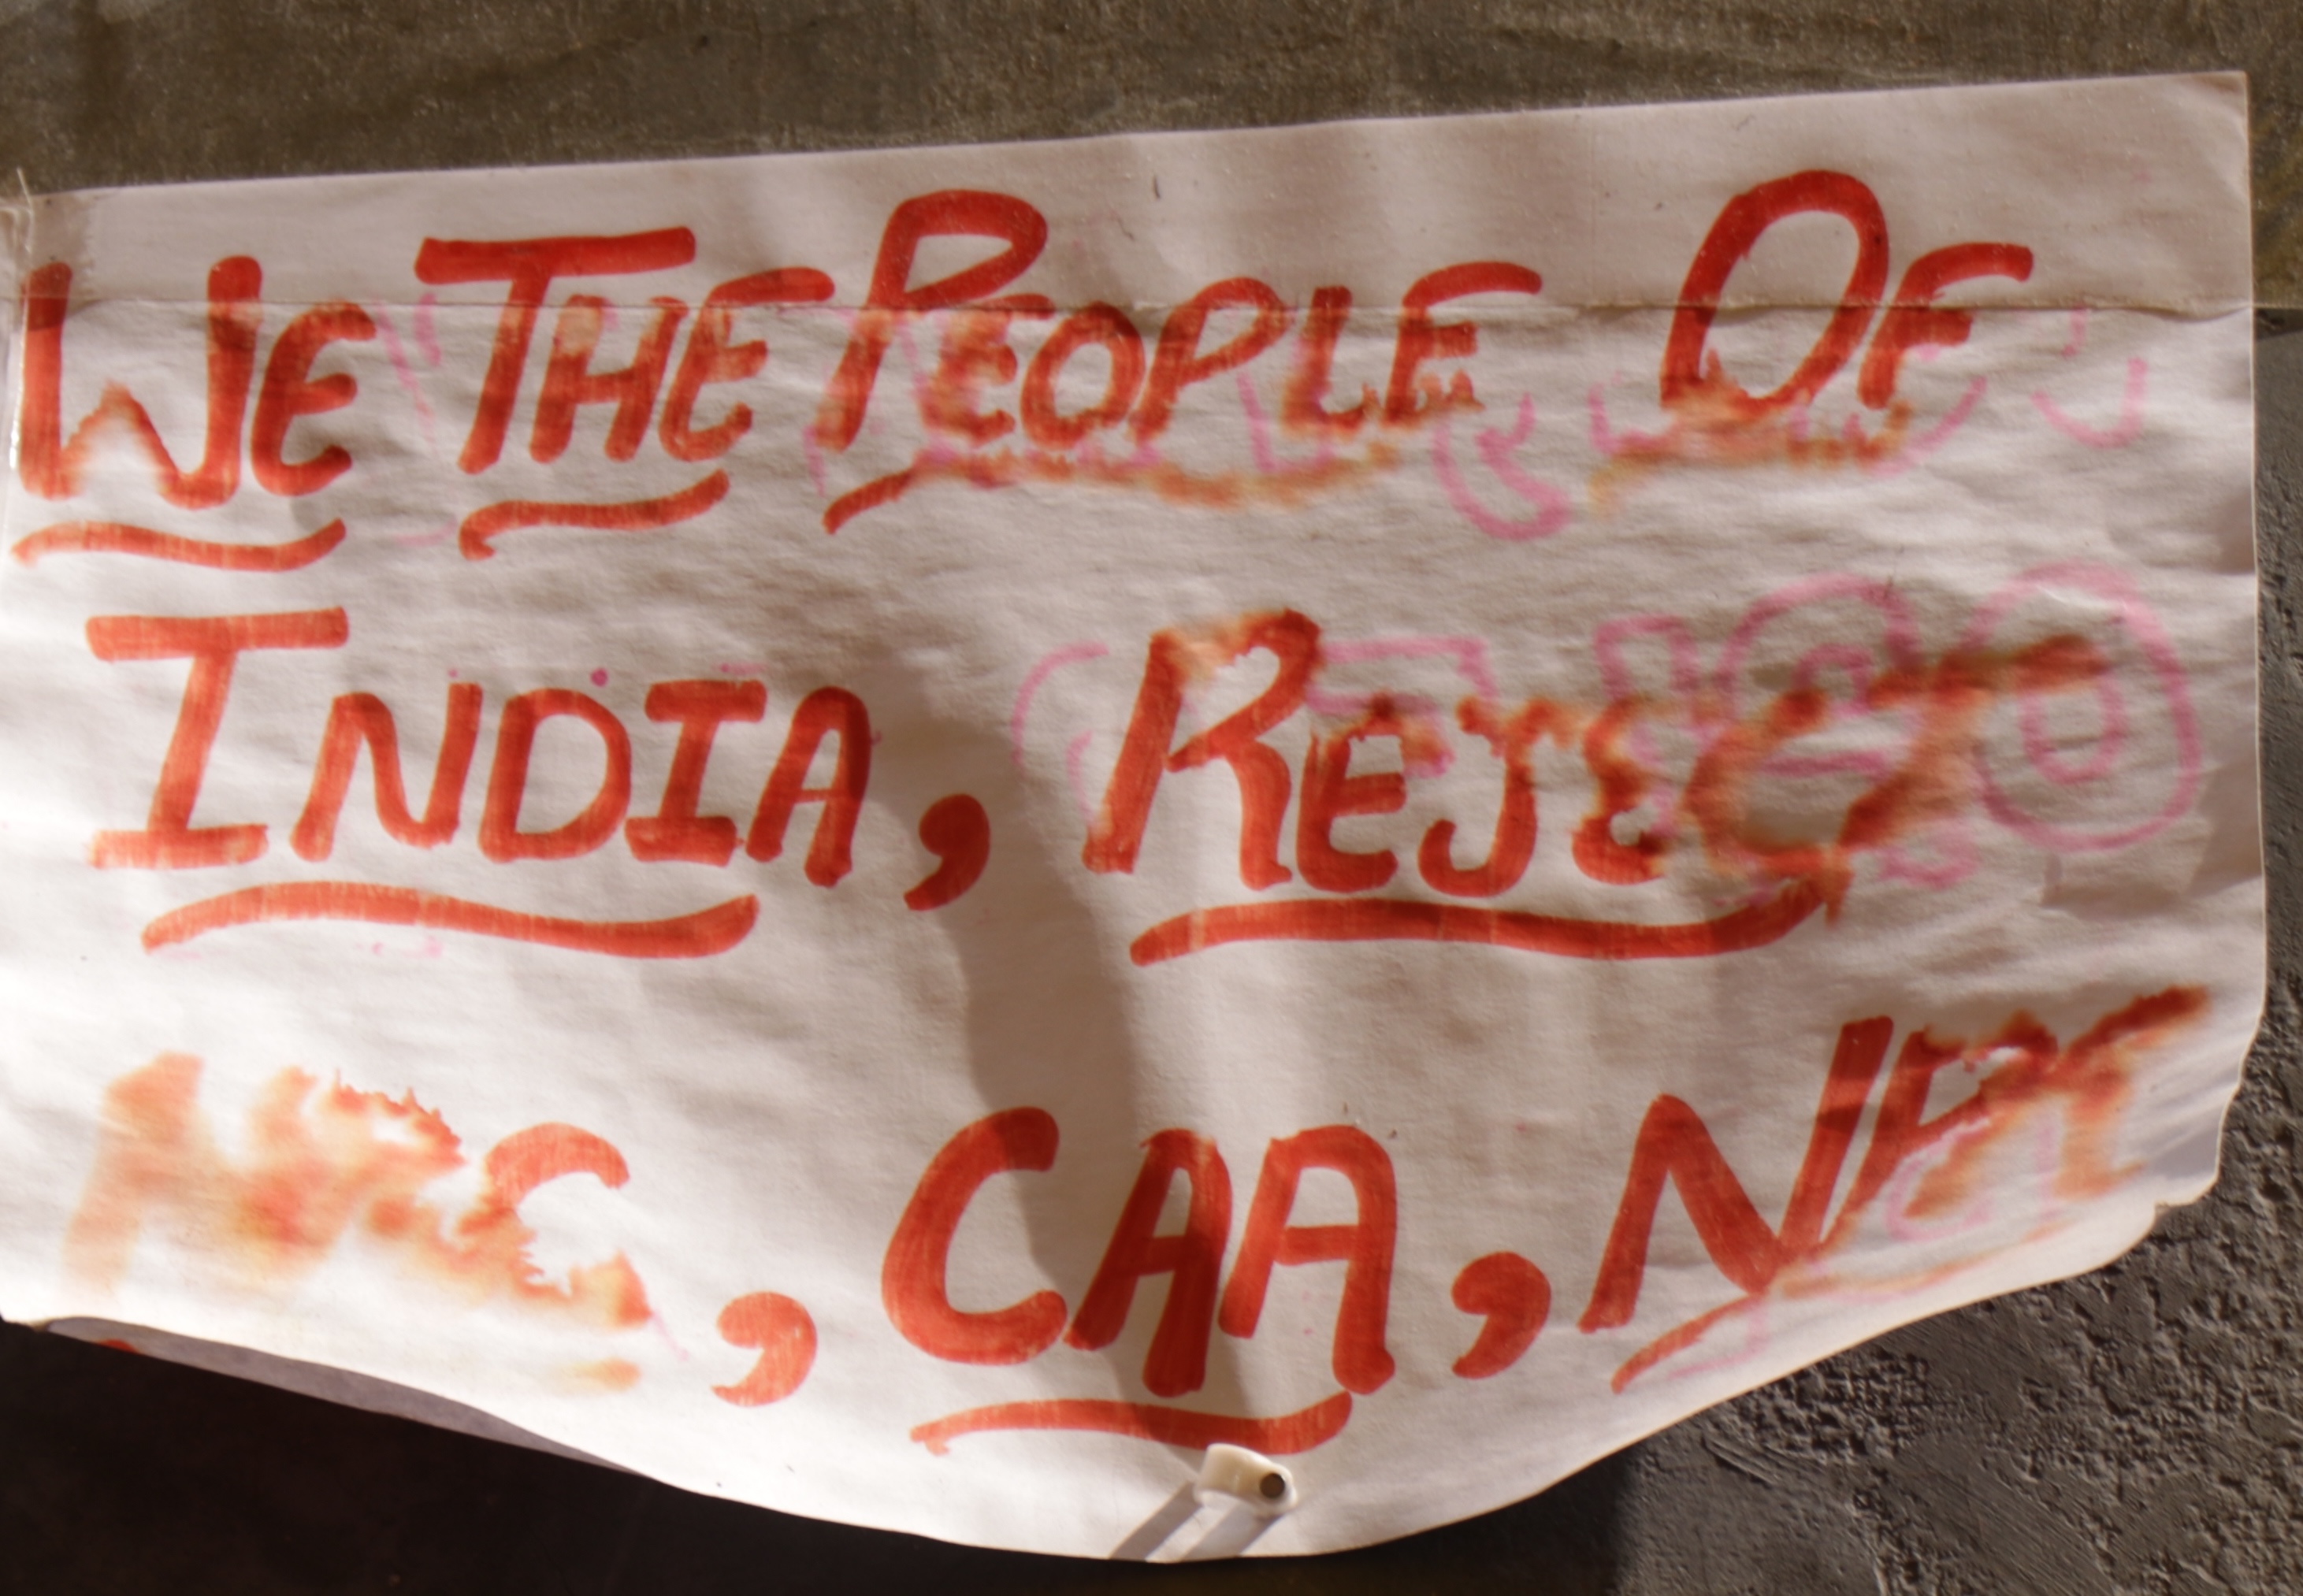 WE THE PEOPLE OF
INDIA, REJECT
NRC, CAA, NPR